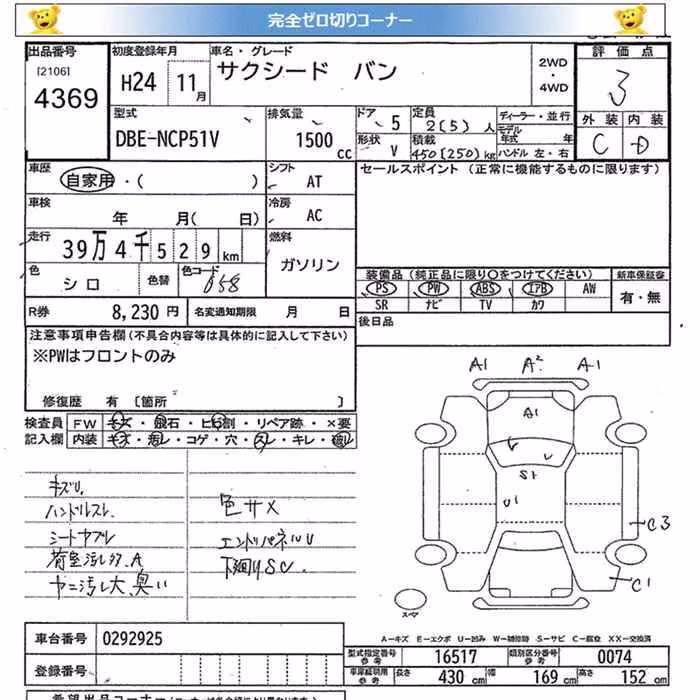 完全ゼロ切りコーナー
出品番号
[2106]
4369
初度登録年月
H24 11月
車名・グレード
サクシード バン
2WD
・
4WD
評価点
3
型式
DBE-NCP51V
排気量
1500 cc
ドア 5
形状 V
定員 2(5) 人
積載 450(250) kg
ディーラー・並行
モデル年式 年
ハンドル 左・右
外装 内装
C D
車歴
自家用・( )
シフト
AT
セールスポイント (正常に機能するものに限ります)
車検
年 月( 日)
冷房
AC
走行
39万4千529km
燃料
ガソリン
色
シロ
色替
色コード
058
装備品 (純正品に限り○をつけてください)
新車保証書
PS PW ABS エアB AW
SR ナビ TV カワ
有・無
R券 8,230円
名変通知期限 月 日
後日品
注意事項申告欄 (不具合内容等は具体的に記入して下さい)
※PWはフロントのみ
修復歴 有 [箇所 ]
検査員 FW キズ・飛石・ヒビ割・リペア跡・×要
記入欄 内装 キズ・汚レ・コゲ・穴・スレ・キレ・
キズリ.
ハンドルスレ.
シートヤブレ
荷室汚レキズ.A
ヤニ汚レ大、臭い
色サメ
エンドパネルU
下廻りSC
A1 A2 A1
A1
S1
U1
C3
C1
スペア
A―キズ E―エクボ U―凹み W―補修跡 S―サビ C―腐食 XX―交換済
車台番号 0292925
登録番号
型式指定番号 参考 16517
類別区分番号 参考 0074
車庫証明用 参考 長さ 430 cm 幅 169 cm 高さ 152 cm
希望出品コーナー